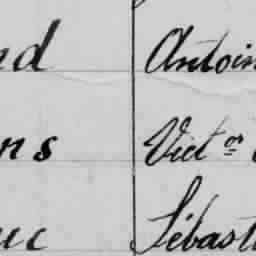 nd Antoin
ns Vict or
uc Sébast